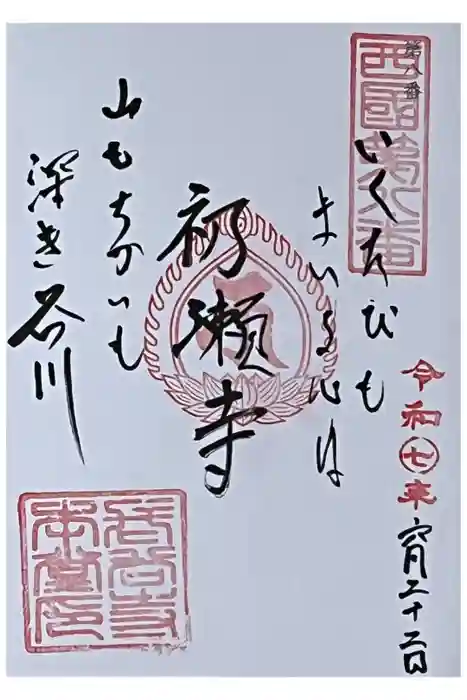 西國第八番
第八番
いくたびも
まいる心は
初瀬寺
山もちかいも
深き谷川
令和七年
六月二十二日
長谷寺本堂印